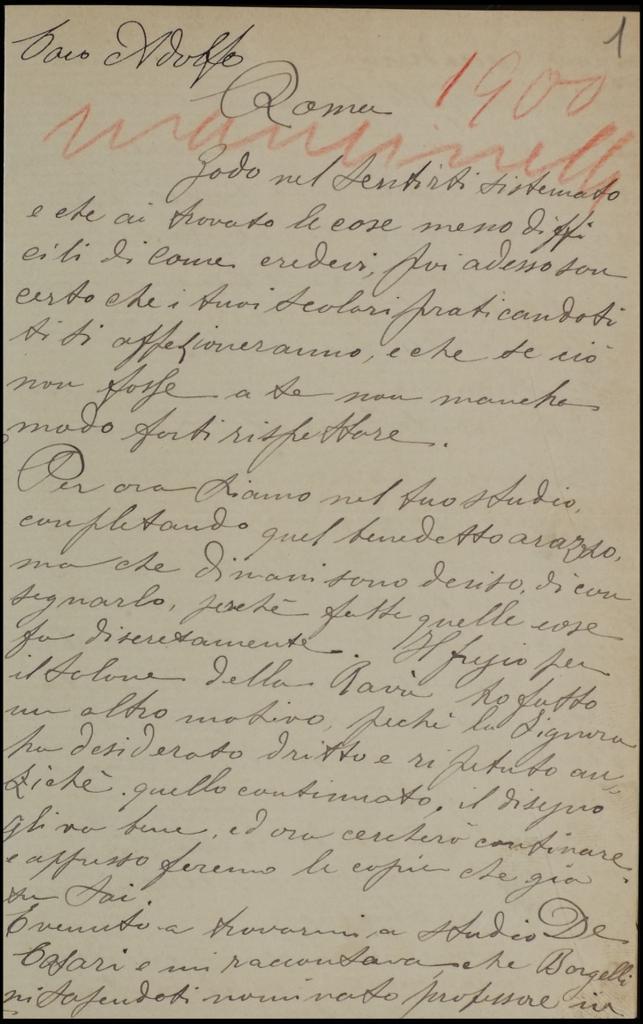 1
Caro Adolfo
1900
Roma
Mancinelli
Godo nel sentirti sistemato
e che ai trovato le cose meno diffi
cili di come credevi, poi adesso son
certo che i tuoi scolari praticandoti
ti si affezioneranno, e che se ciò
non fosse a te non manche
modo farti rispettare.
Per ora siamo nel tuo studio,
completando quel benedetto arazzo,
ma che dimani sono deciso, di con
segnarlo, perchè fatte quelle cose
fa discretamente. Il fregio per
il salone della Ravà ho fatto
un altro motivo, pechè la Signora
ha desiderato dritto e ripetuto an
zichè quello continuato, il disegno
gli va bene, ed ora cercherò continare
e appresso faremo le copie che già
tu sai.
È venuto a trovarmi a studio De
Cesari e mi raccontava che Borgelli
ni sapendoti nominato professore in